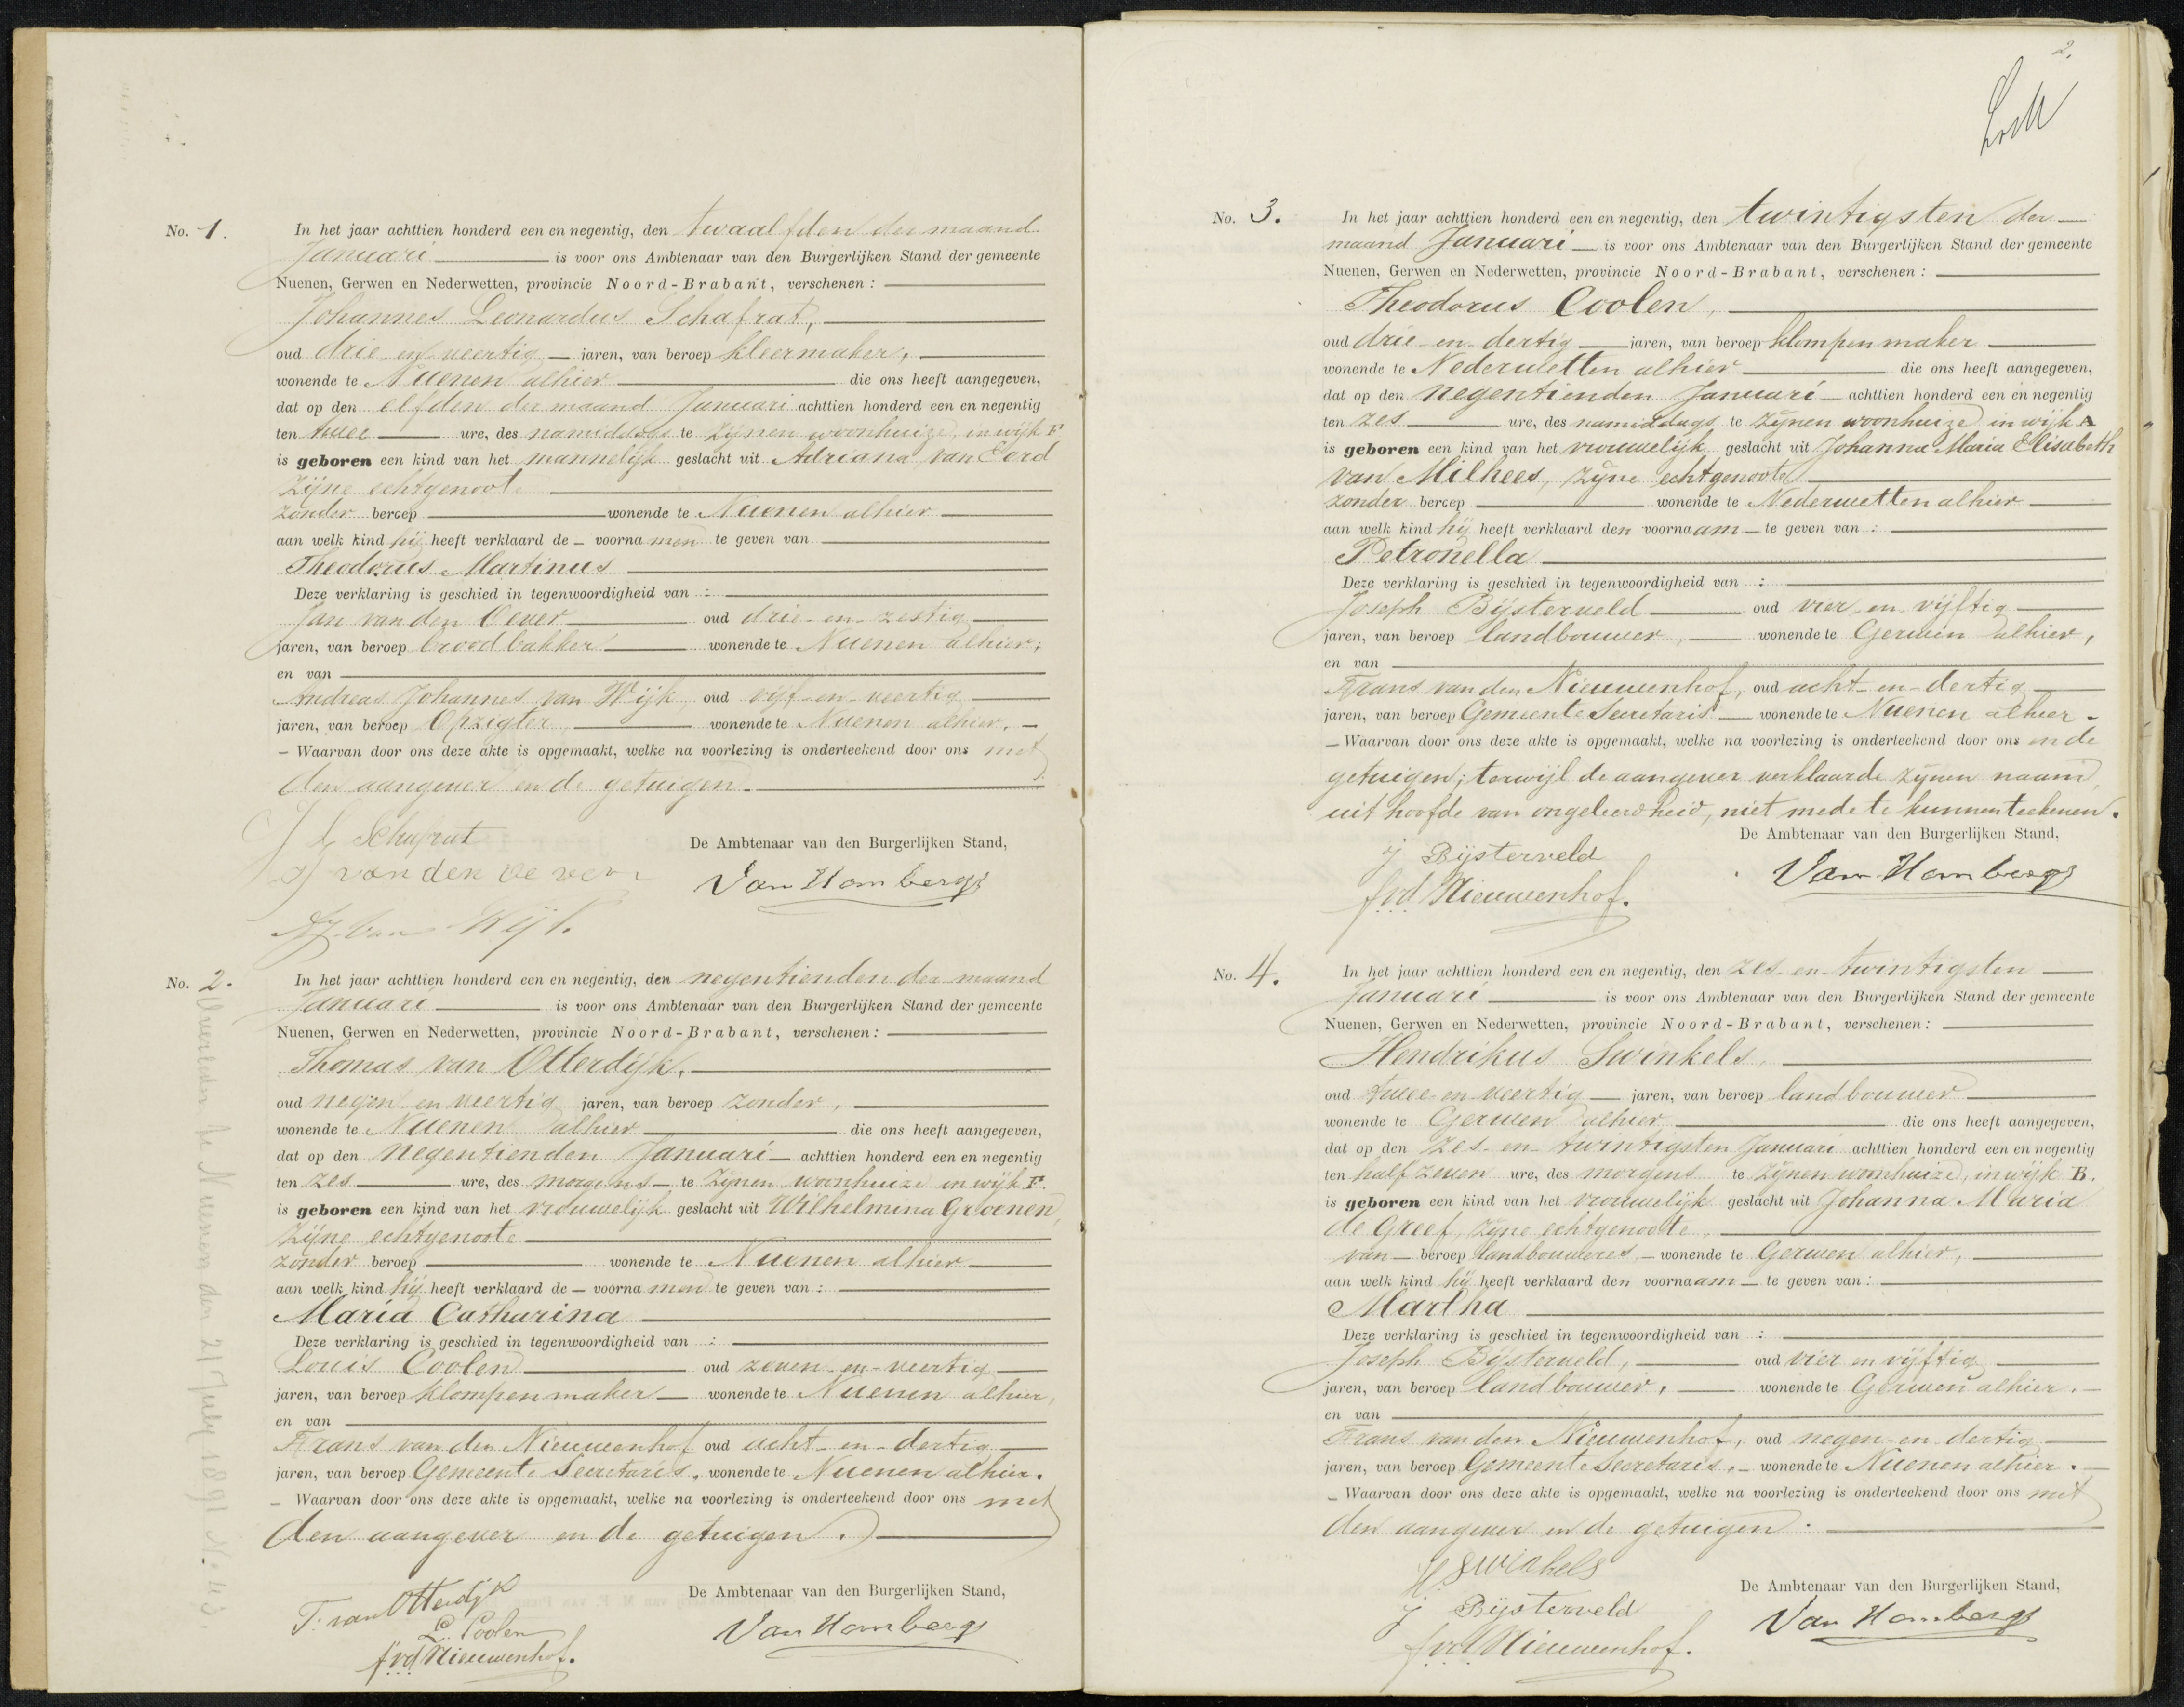 No. 1. In het jaar achttien honderd een en negentig, den twaalfden der maand
Januari is voor ons Ambtenaar van den Burgerlijken Stand der gemeente
Nuenen, Gerwen en Nederwetten, provincie Noord-Brabant, verschenen:
Johannes Leonardus Schafrat,
oud drie-en-veertig jaren, van beroep kleermaker,
wonende te Nuenen alhier die ons heeft aangegeven,
dat op den elfden der maand Januari achttien honderd een en negentig
ten twee ure, des namiddags te zijnen woonhuize, in wijk F
is geboren een kind van het mannelijk geslacht uit Adriana van Eerd
zijne echtgenoote
zonder beroep wonende te Nuenen alhier
aan welk kind hij heeft verklaard de voornamen te geven van
Theodorus Martinus
Deze verklaring is geschied in tegenwoordigheid van :
Jan van den Oever oud drie-en-zestig
jaren, van beroep broodbakker wonende te Nuenen alhier;
en van
Andreas Johannes van Wijk oud vijf-en-veertig
jaren, van beroep Opzigter wonende te Nuenen alhier.
Waarvan door ons deze akte is opgemaakt, welke na voorlezing is onderteekend door ons met
den aangever en de getuigen.
J L Schafrat
De Ambtenaar van den Burgerlijken Stand,
J van den oever
Van Hombergh
A.J. van Wijk.
No. 2. In het jaar achttien honderd een en negentig, den negentienden der maand
Januari is voor ons Ambtenaar van den Burgerlijken Stand der gemeente
Nuenen, Gerwen en Nederwetten, provincie Noord-Brabant, verschenen:
Thomas van Otterdijk,
oud negen en veertig jaren, van beroep zonder,
wonende te Nuenen alhier die ons heeft aangegeven,
dat op den negentienden Januari achttien honderd een en negentig
ten zes ure, des morgens te zijnen woonhuize in wijk F.
is geboren een kind van het vrouwelijk geslacht uit Wilhelmina Groenen,
zijne echtgenoote
zonder beroep wonende te Nuenen alhier
aan welk kind hij heeft verklaard de voornamen te geven van :
Maria Catharina
Deze verklaring is geschied in tegenwoordigheid van :
Louis Coolen oud zeven-en-veertig
jaren, van beroep klompenmaker wonende te Nuenen alhier,
en van
Frans van den Nieuwenhof oud acht-en-dertig
jaren, van beroep Gemeente Secretaris, wonende te Nuenen alhier.
Waarvan door ons deze akte is opgemaakt, welke na voorlezing is onderteekend door ons met
den aangever en de getuigen.
De Ambtenaar van den Burgerlijken Stand,
T. van Otterdijk
L. Coolen
Van Hombergh
fvd Nieuwenhof.
Overleden te Nuenen den 21 July 1891 No. 43.
2.
No. 3. In het jaar achttien honderd een en negentig, den twintigsten der
maand Januari is voor ons Ambtenaar van den Burgerlijken Stand der gemeente
Nuenen, Gerwen en Nederwetten, provincie Noord-Brabant, verschenen:
Theodorus Coolen,
oud drie-en-dertig jaren, van beroep klompenmaker
wonende te Nederwetten alhier die ons heeft aangegeven,
dat op den negentienden Januari achttien honderd een en negentig
ten zes ure, des namiddags te zijnen woonhuize in wijk A
is geboren een kind van het vrouwelijk geslacht uit Johanna Maria Elisabeth
van Milhees, zijne echtgenoote
zonder beroep wonende te Nederwetten alhier
aan welk kind hij heeft verklaard den voornaam te geven van :
Petronella
Deze verklaring is geschied in tegenwoordigheid van :
Joseph Bijsterveld oud vier-en-vijftig
jaren, van beroep landbouwer, wonende te Gerwen alhier,
en van
Frans van den Nieuwenhof, oud acht-en-dertig
jaren, van beroep Gemeente Secretaris wonende te Nuenen alhier
Waarvan door ons deze akte is opgemaakt, welke na voorlezing is onderteekend door ons en de
getuigen; terwijl de aangever verklaarde zijnen naam,
uit hoofde van ongeleerdheid, niet mede te kunnen teekenen.
De Ambtenaar van den Burgerlijken Stand,
J Bijsterveld
Van Hombergh
fvd Nieuwenhof.
No. 4. In het jaar achttien honderd een en negentig, den zes-en-twintigsten
Januari is voor ons Ambtenaar van den Burgerlijken Stand der gemeente
Nuenen, Gerwen en Nederwetten, provincie Noord-Brabant, verschenen:
Hendrikus Swinkels,
oud twee-en-veertig jaren, van beroep landbouwer
wonende te Gerwen alhier die ons heeft aangegeven,
dat op den zes-en-twintigsten Januari achttien honderd een en negentig
ten half zeven ure, des morgens te zijnen woonhuize, in wijk B.
is geboren een kind van het vrouwelijk geslacht uit Johanna Maria
de Greef, zijne echtgenoote,
van beroep landbouweres, wonende te Gerwen alhier,
aan welk kind hij heeft verklaard den voornaam te geven van :
Martha
Deze verklaring is geschied in tegenwoordigheid van :
Joseph Bijsterveld, oud vier en vijftig
jaren, van beroep landbouwer, wonende te Gerwen alhier.
en van
Frans van den Nieuwenhof, oud negen-en-dertig
jaren, van beroep Gemeente Secretaris, wonende te Nuenen alhier.
Waarvan door ons deze akte is opgemaakt, welke na voorlezing is onderteekend door ons met
den aangever en de getuigen.
H Swinkels
De Ambtenaar van den Burgerlijken Stand,
J Bijsterveld
Van Hombergh
fvd Nieuwenhof.